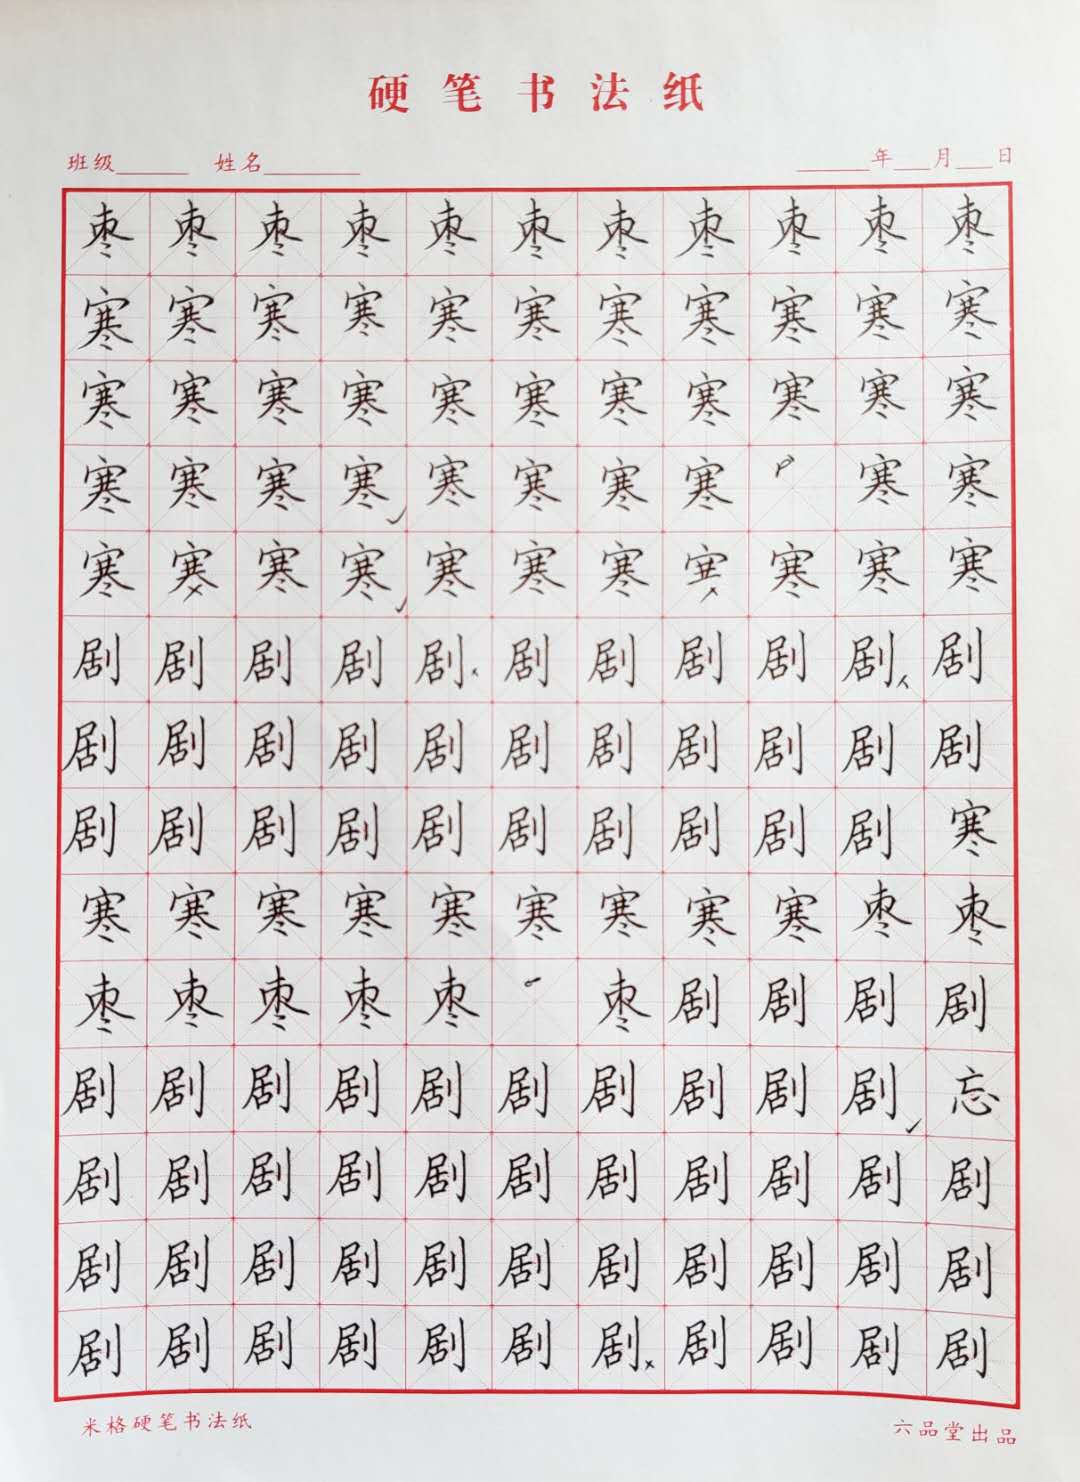 硬笔书法纸
班级______ 姓名________ ______年___月___日
枣枣枣枣枣枣枣枣枣枣枣
寒寒寒寒寒寒寒寒寒寒寒
寒寒寒寒寒寒寒寒寒寒寒
寒寒寒寒寒寒寒寒寒寒
寒寒寒寒寒寒寒寒寒寒
剧剧剧剧剧剧剧剧剧剧剧
剧剧剧剧剧剧剧剧剧剧剧
剧剧剧剧剧剧剧剧剧剧寒
寒寒寒寒寒寒寒寒寒枣枣
枣枣枣枣枣枣剧剧剧剧
剧剧剧剧剧剧剧剧剧剧忘
剧剧剧剧剧剧剧剧剧剧剧
剧剧剧剧剧剧剧剧剧剧剧
剧剧剧剧剧剧剧剧剧剧剧
米格硬笔书法纸 六品堂出品